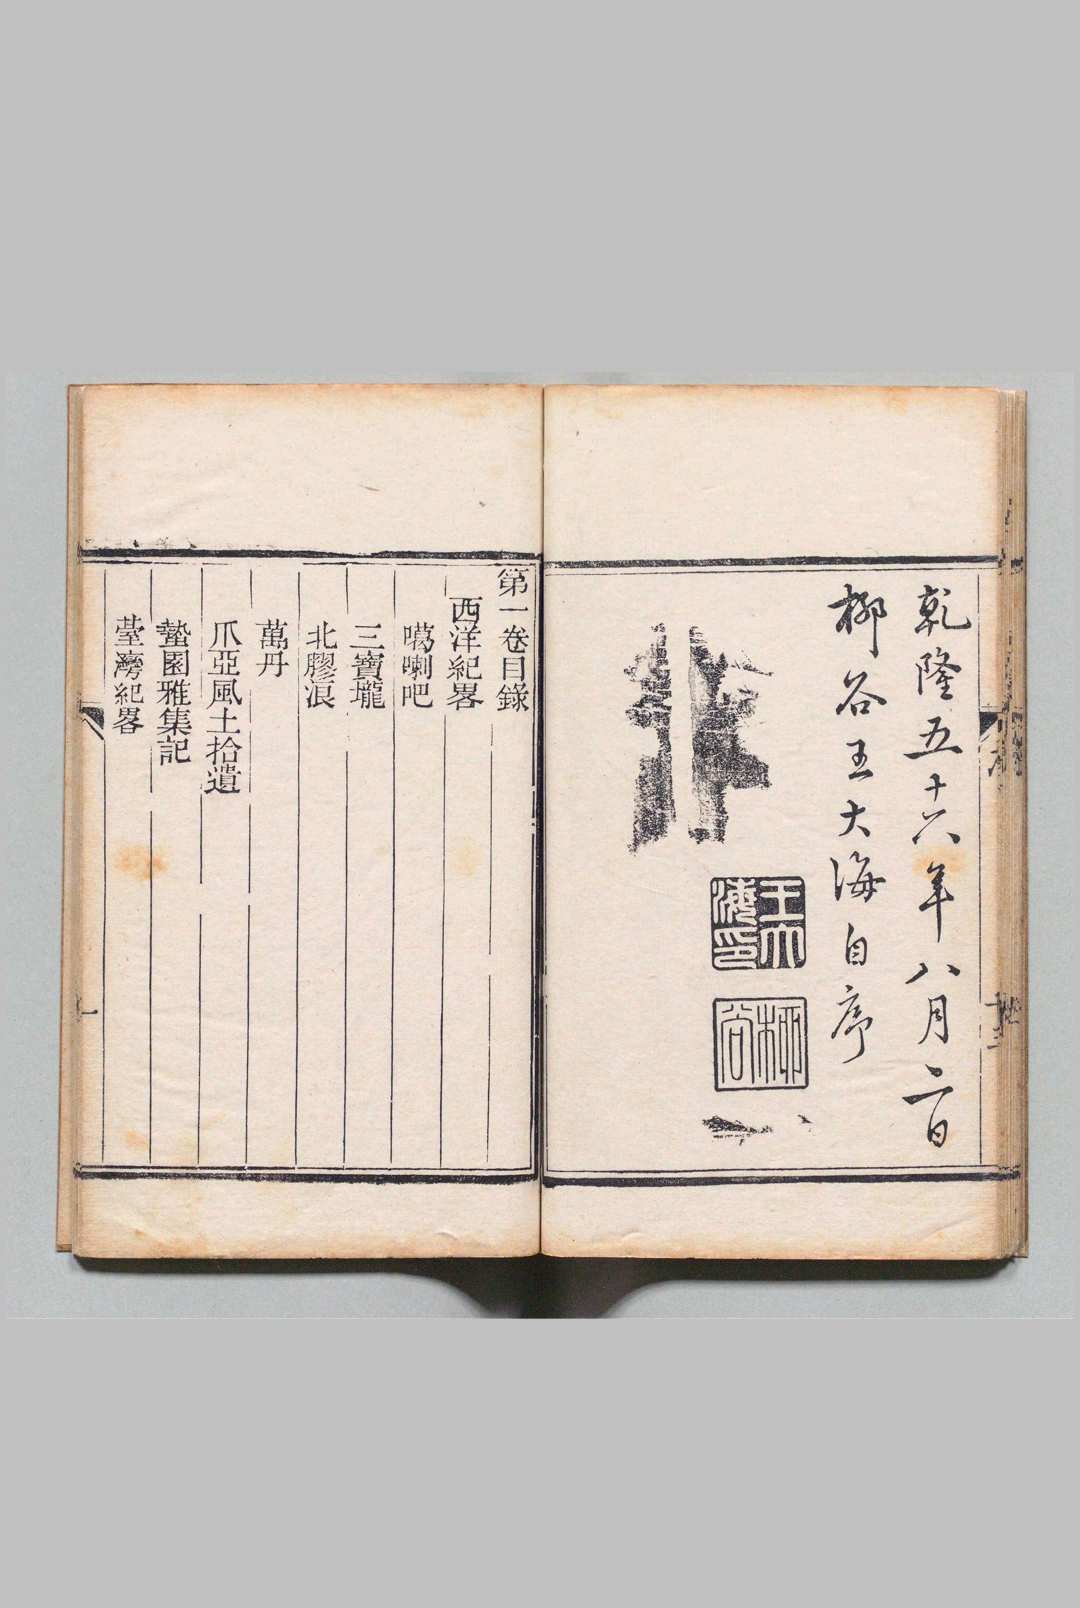 乾隆五十六年八月二日
柳谷王大海自序
王大海印
柳谷
第一卷目錄
西洋紀畧
噶喇吧
三寶壠
北膠浪
萬丹
爪亞風土拾遺
蟄園雅集記
臺灣紀畧